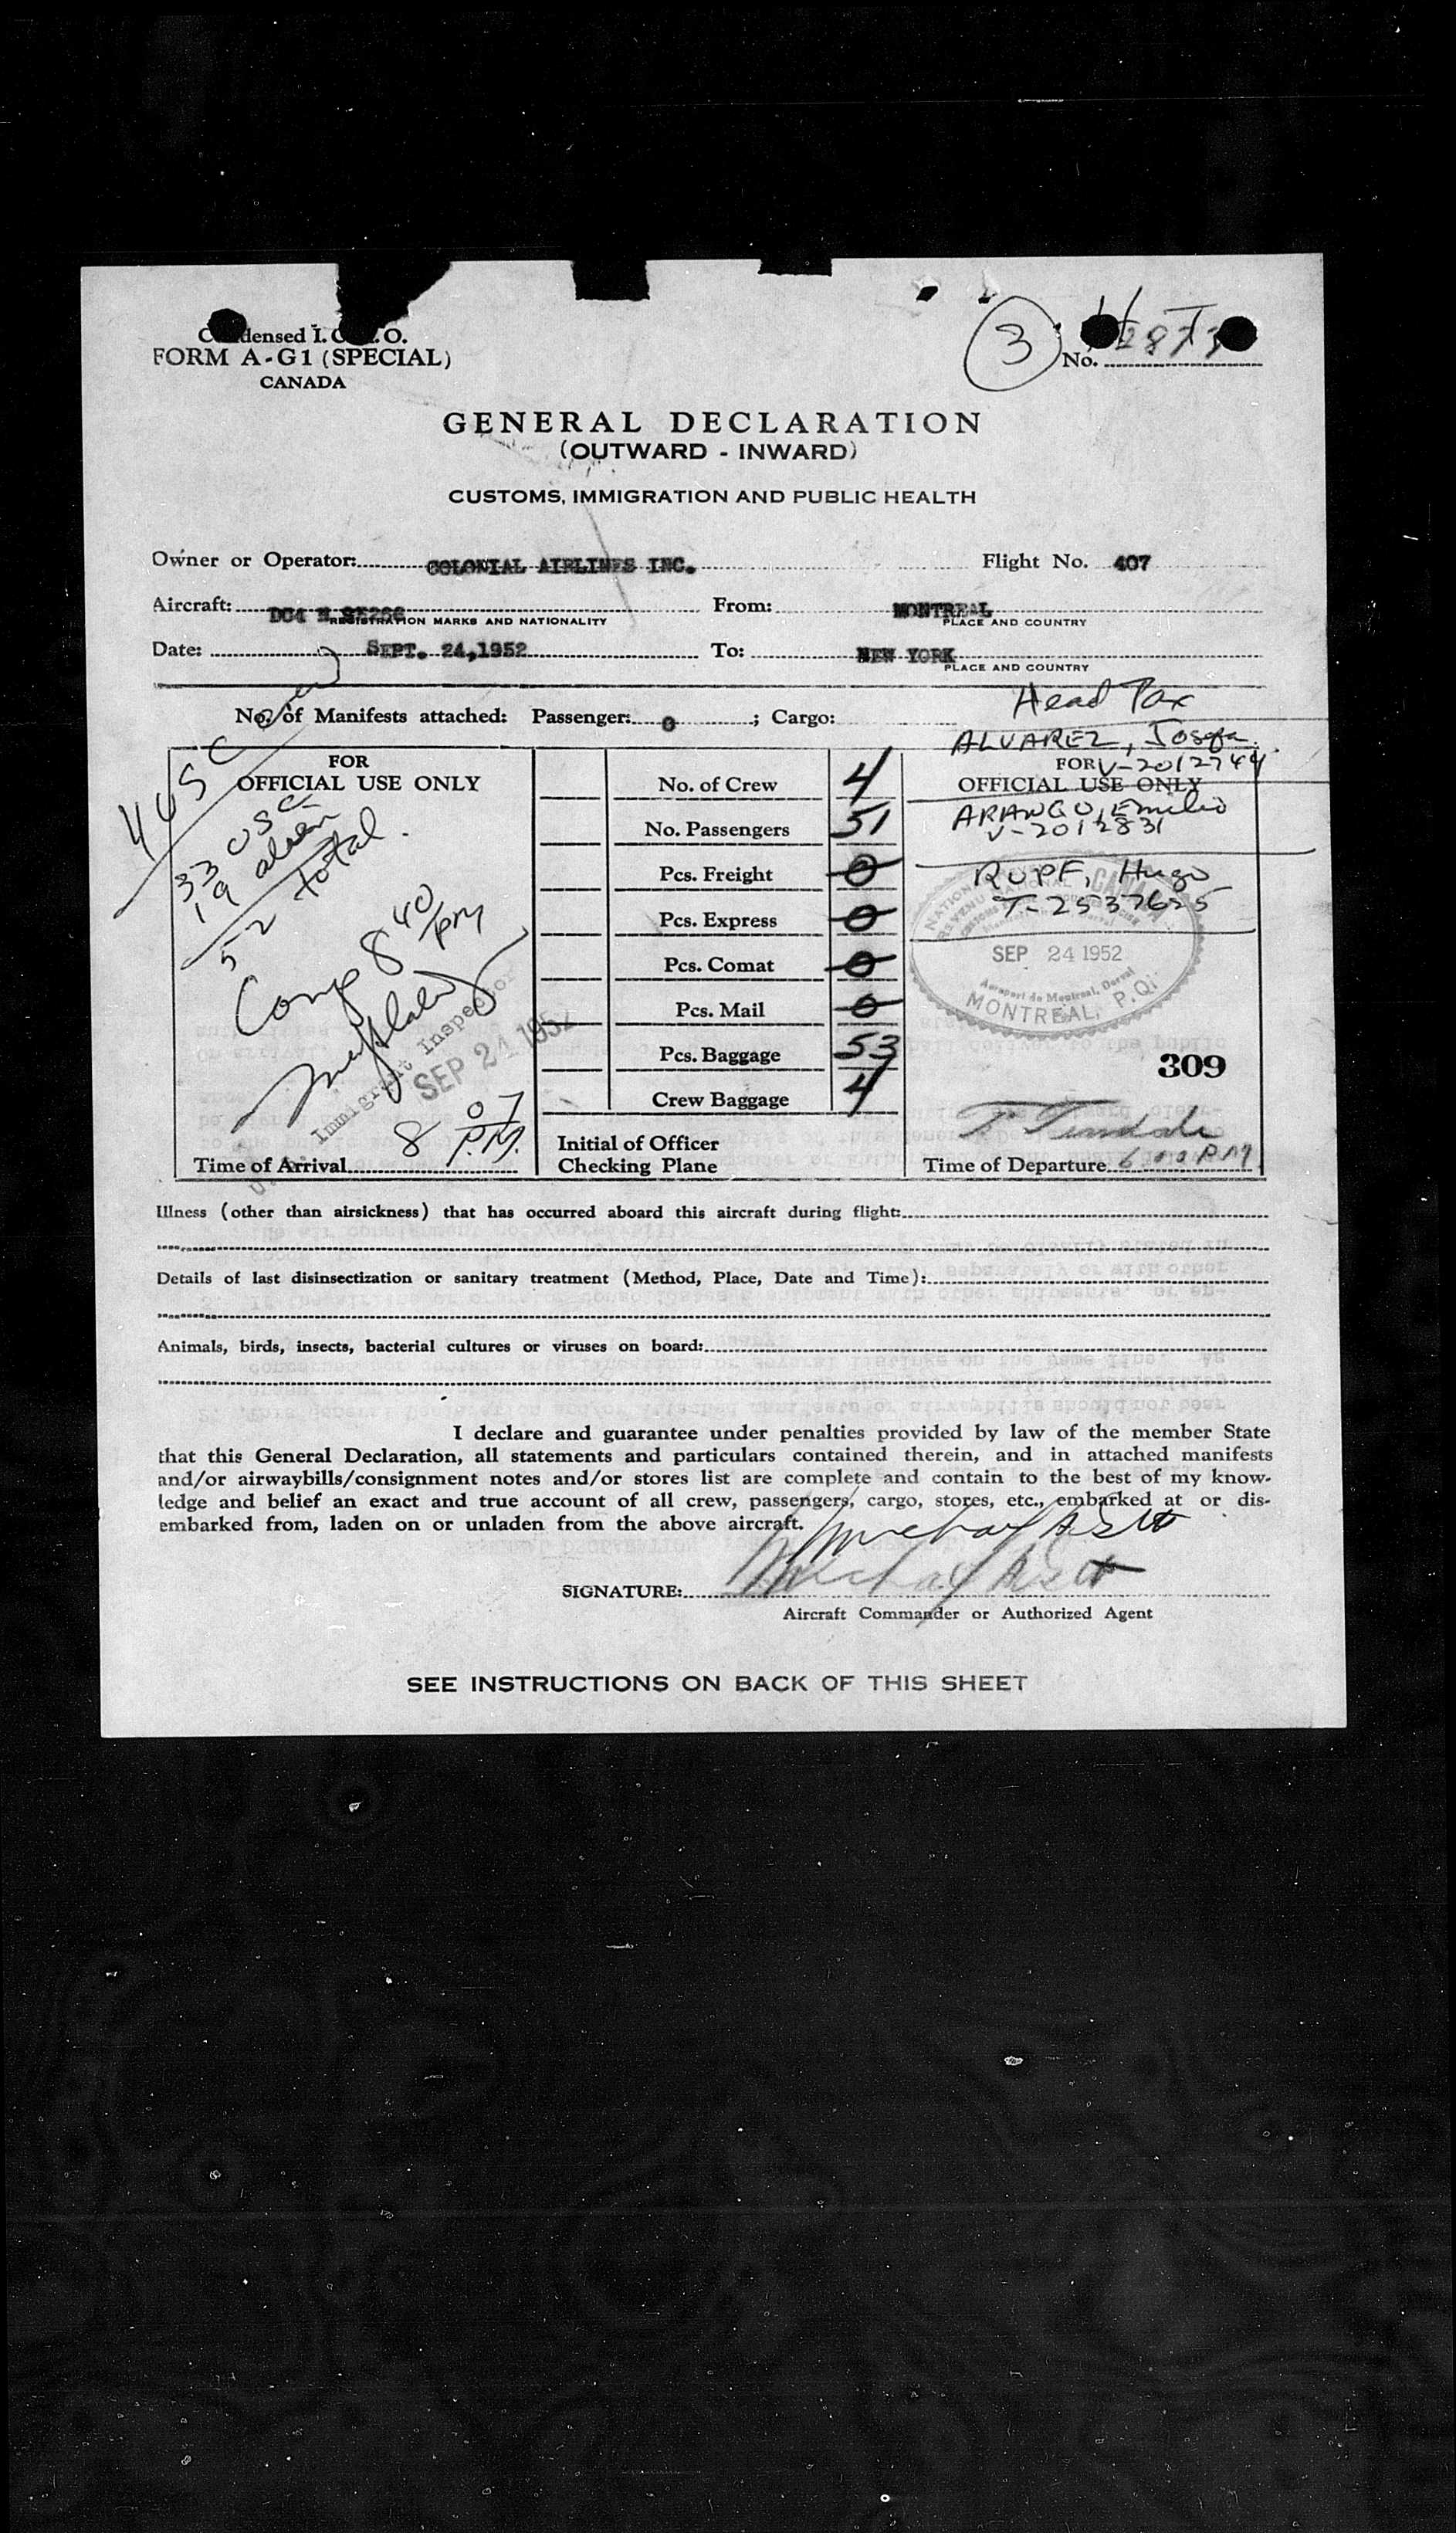 Condensed I.C.A.O.
FORM A-G1 (SPECIAL)
CANADA
3
No.
GENERAL DECLARATION
(OUTWARD - INWARD)
CUSTOMS, IMMIGRATION AND PUBLIC HEALTH
Owner or Operator: COLONIAL AIRLINES INC. Flight No. 407
Aircraft: DC4 From: MONTREAL
REGISTRATION MARKS AND NATIONALITY PLACE AND COUNTRY
Date: SEPT. 24,1952 To: NEW YORK
PLACE AND COUNTRY
Head Tax
No. of Manifests attached: Passenger: 0 ; Cargo:
ALVAREZ, Josefa
V-2012744
FOR
OFFICIAL USE ONLY
ARANGO, Emilio
V-2012831
RUPF, Hugo
T-2537625
CANADA
SEP 24 1952
Aeroport de Montreal, Dorval
MONTREAL, P.Q.
309
6 00 PM
Time of Departure
FOR
OFFICIAL USE ONLY
4 USC crew
33 USC
19 alien
52 total
Comp 8 40 pm
Immigrant Inspector
SEP 24 1952
8 07 P.M.
Time of Arrival
No. of Crew 4
No. Passengers 51
Pcs. Freight 0
Pcs. Express 0
Pcs. Comat 0
Pcs. Mail 0
Pcs. Baggage 53
Crew Baggage 4
Initial of Officer
Checking Plane
Illness (other than airsickness) that has occurred aboard this aircraft during flight:
Details of last disinsectization or sanitary treatment (Method, Place, Date and Time):
Animals, birds, insects, bacterial cultures or viruses on board:
I declare and guarantee under penalties provided by law of the member State
that this General Declaration, all statements and particulars contained therein, and in attached manifests
and/or airwaybills/consignment notes and/or stores list are complete and contain to the best of my know-
ledge and belief an exact and true account of all crew, passengers, cargo, stores, etc., embarked at or dis-
embarked from, laden on or unladen from the above aircraft.
SIGNATURE:
Aircraft Commander or Authorized Agent
SEE INSTRUCTIONS ON BACK OF THIS SHEET